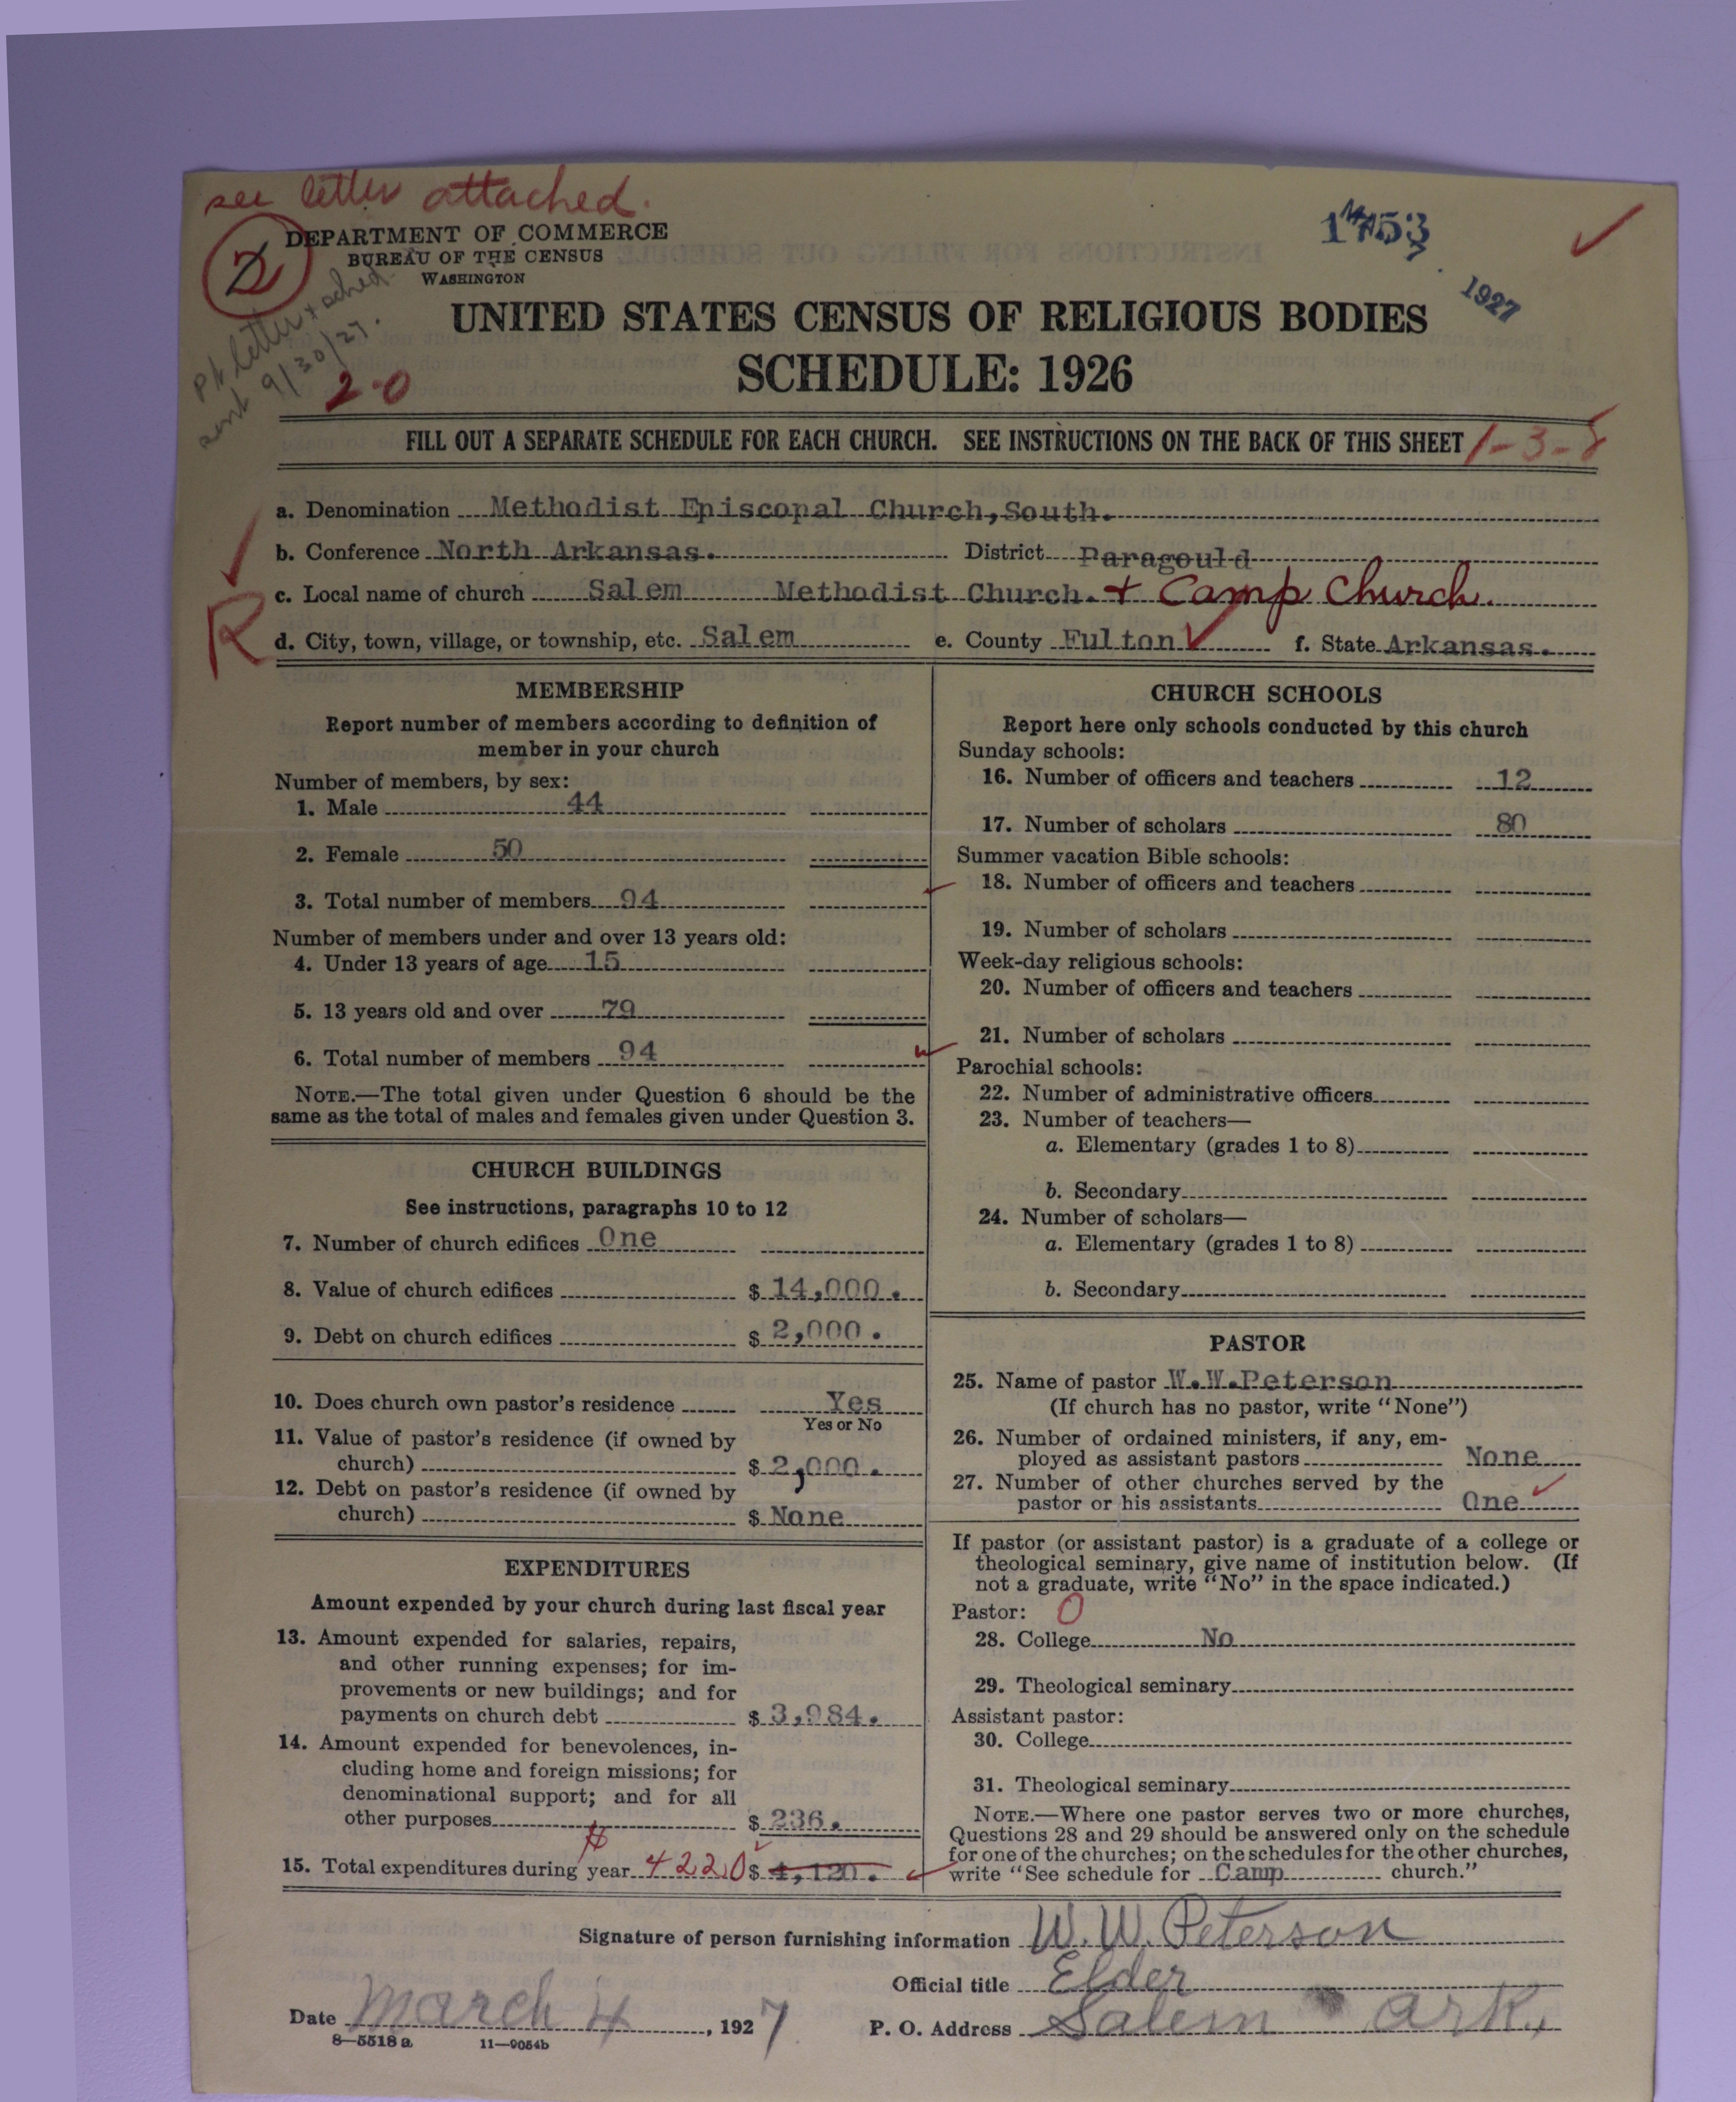 see letter attached.
2
DEPARTMENT OF COMMERCE
BUREAU OF THE CENSUS
WASHINGTON
1927
Ph letter + sched
sent 9/30/27.
2-0
UNITED STATES CENSUS OF RELIGIOUS BODIES
SCHEDULE: 1926
FILL OUT A SEPARATE SCHEDULE FOR EACH CHURCH. SEE INSTRUCTIONS ON THE BACK OF THIS SHEET 1-3-8
a. Denomination Methodist Episcopal Church, South.
b. Conference North Arkansas. District Paragould
c. Local name of church Salem Methodist Church. + Camp Church.
R
d. City, town, village, or township, etc. Salem e. County Fulton f. State Arkansas.
MEMBERSHIP
Report number of members according to definition of
member in your church
Number of members, by sex:
1. Male 44
2. Female 50
3. Total number of members 94
Number of members under and over 13 years old:
4. Under 13 years of age 15
5. 13 years old and over 79
6. Total number of members 94
NOTE.—The total given under Question 6 should be the
same as the total of males and females given under Question 3.
CHURCH BUILDINGS
See instructions, paragraphs 10 to 12
7. Number of church edifices One
8. Value of church edifices $ 14,000.
9. Debt on church edifices $ 2,000.
10. Does church own pastor's residence Yes
Yes or No
11. Value of pastor's residence (if owned by
church) $ 2,000.
12. Debt on pastor's residence (if owned by
church) $ None
EXPENDITURES
Amount expended by your church during last fiscal year
13. Amount expended for salaries, repairs,
and other running expenses; for im-
provements or new buildings; and for
payments on church debt $ 3,984.
14. Amount expended for benevolences, in-
cluding home and foreign missions; for
denominational support; and for all
other purposes $ 236.
15. Total expenditures during year 4220 $ 4,120.
CHURCH SCHOOLS
Report here only schools conducted by this church
Sunday schools:
16. Number of officers and teachers 12
17. Number of scholars 80
Summer vacation Bible schools:
18. Number of officers and teachers
19. Number of scholars
Week-day religious schools:
20. Number of officers and teachers
21. Number of scholars
Parochial schools:
22. Number of administrative officers
23. Number of teachers—
a. Elementary (grades 1 to 8)
b. Secondary
24. Number of scholars—
a. Elementary (grades 1 to 8)
b. Secondary
PASTOR
25. Name of pastor W.W.Peterson
(If church has no pastor, write "None")
26. Number of ordained ministers, if any, em-
ployed as assistant pastors None
27. Number of other churches served by the
pastor or his assistants One
If pastor (or assistant pastor) is a graduate of a college or
theological seminary, give name of institution below. (If
not a graduate, write "No" in the space indicated.)
Pastor: 0
28. College No
29. Theological seminary
Assistant pastor:
30. College
31. Theological seminary
NOTE.—Where one pastor serves two or more churches,
Questions 28 and 29 should be answered only on the schedule
for one of the churches; on the schedules for the other churches,
write "See schedule for Camp church."
Signature of person furnishing information W. W. Peterson
Official title Elder
Date March 4, 1927 P. O. Address Salem Ark.,
8—5518 a 11—9054b